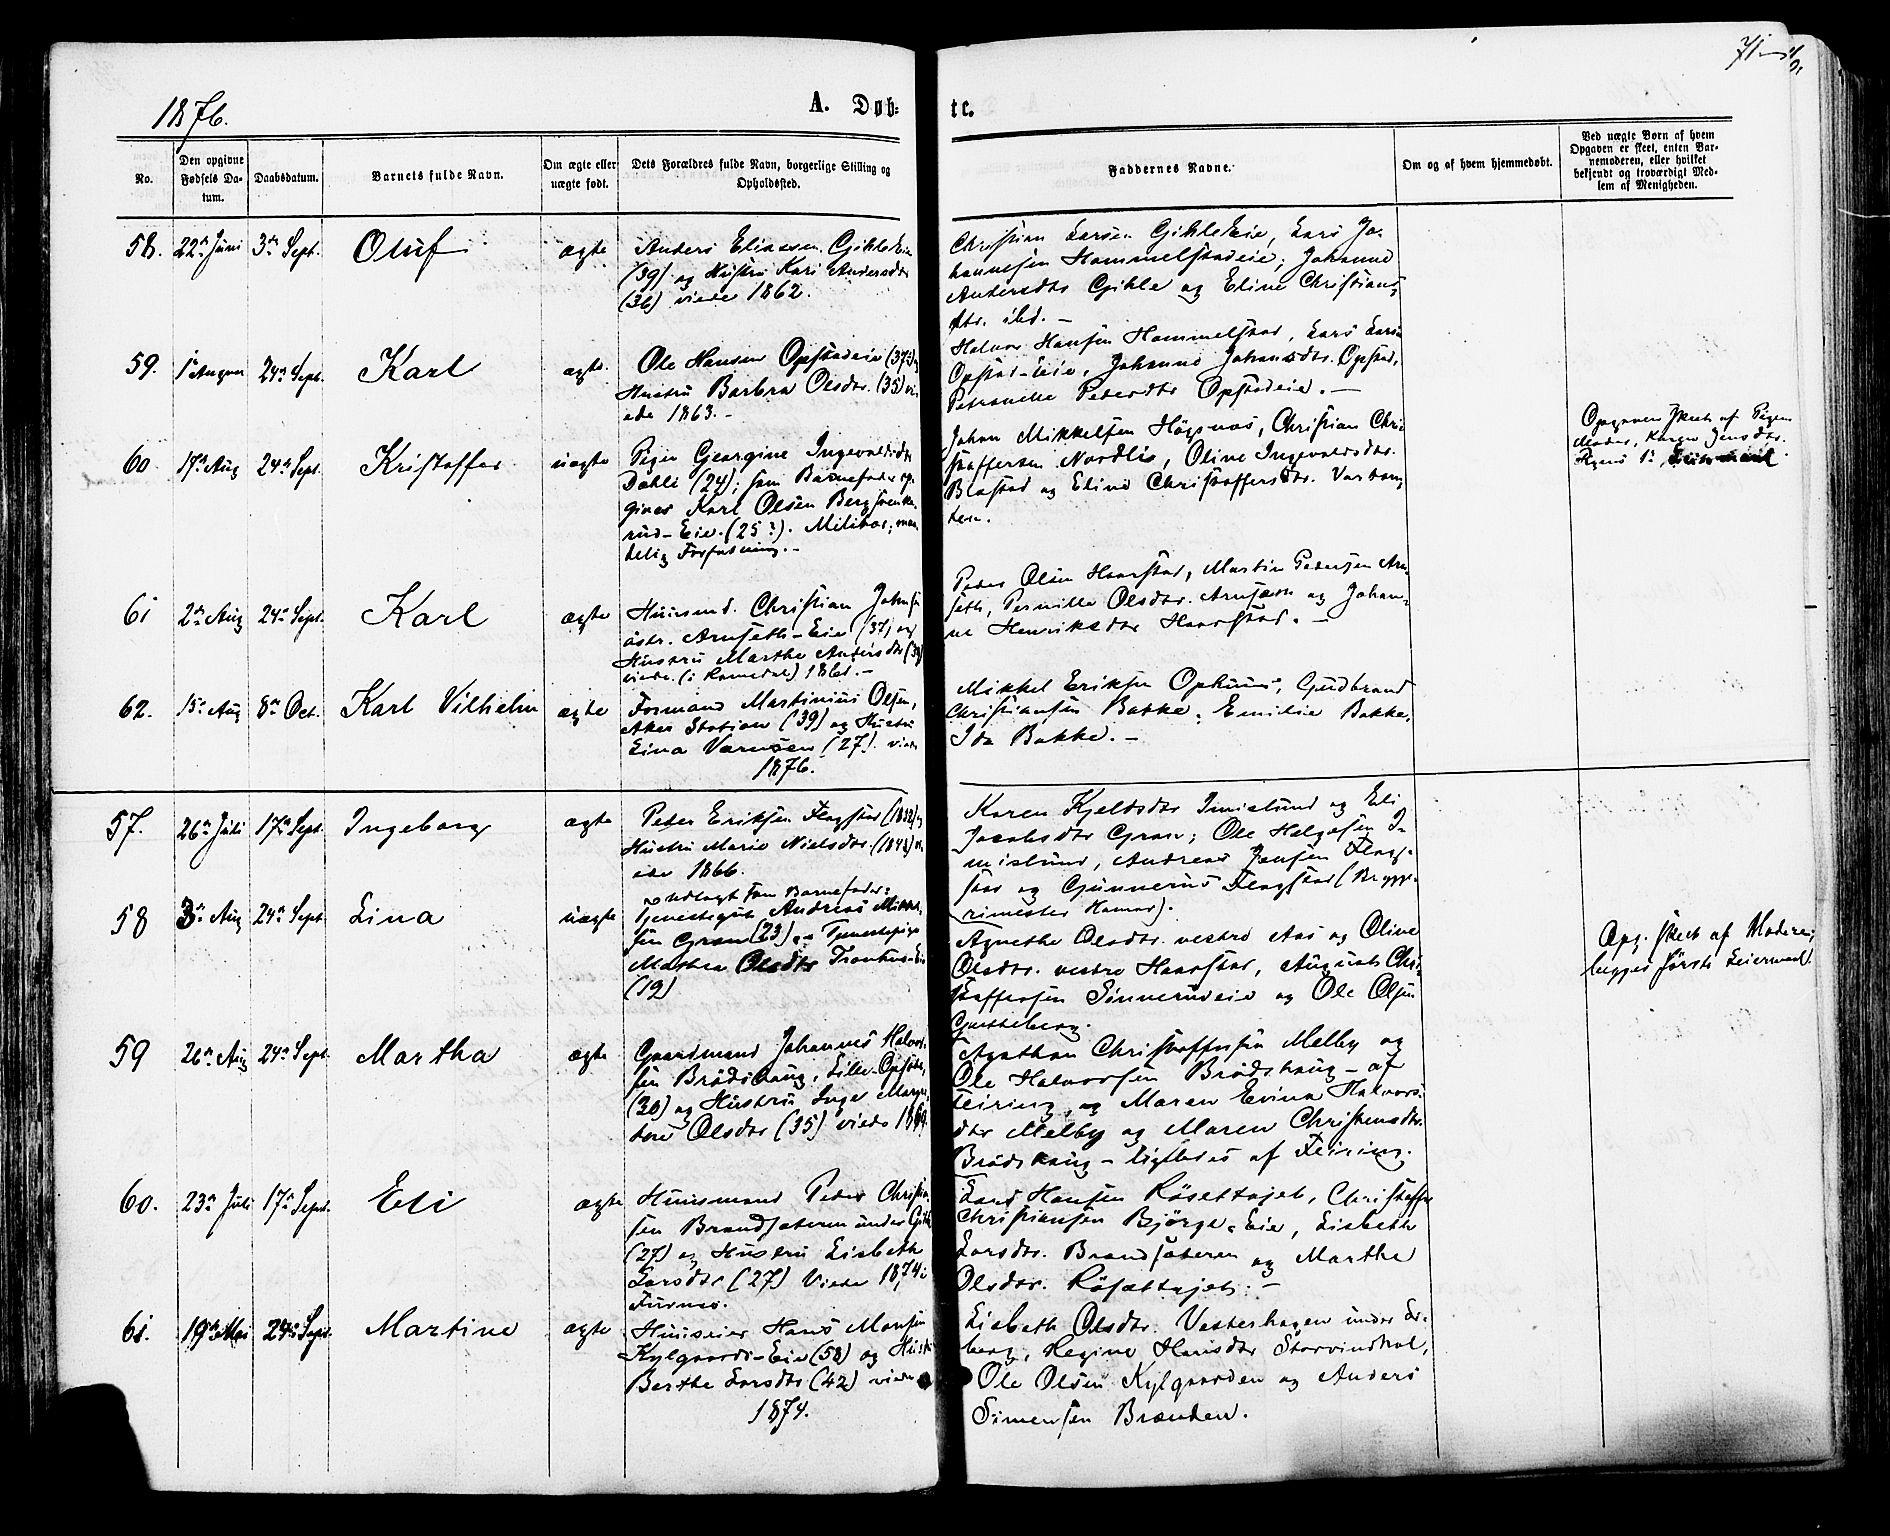 1876.
A. Døb-
te.
71
No.
Den opgivne Fødsels Da-tum.
Daabsdatum.
Barnets fulde Navn.
Om ægte eller uægte født.
Dets Forældres fulde Navn, borgerlige Stilling og Opholdssted.
Faddernes Navne.
Om og af hvem hjemmedøbt.
Ved uægte Børn af hvem
Opgaven er skeet, enten Bar-
nemoderen, eller hvilket
bekjendt og troværdigt Med-
lem af Menigheden.
58. 22de Juni 3die Sept. Oluf ægte
Anders Eliasen Gihleeie
(39) og Hustru Kari Andersdtr
(36) viede 1862.
Christian Larsen Gihleeie, Lars Jo-
hannesen Hommelstadeie, Johanne
Andersdtr Gihle og Eline Christians-
dtr. ibd. –
59. 1ste August 24de Sept. Karl ægte
Ole Hansen Opstadeie (37) og
Hustru Barbra Olsdtr. (35) vi-
ede 1863. –
Halvor Hansen Hommelstad, Lars Larsen
Opstad-Eie, Johanne Johansdtr. Opstad,
Petronelle Pedersdtr Opstadeie. –
60. 17de Aug 24de Sept. Kristoffer uægte
Pige Georgine Ingevaldsdtr
Dahli (24); som Barnefader op-
gives Karl Olsen Bergsvenke-
rud-Eie (25?). Militær, man-
delig Forfatning. –
Johan Mikkelsen Högsnæs, Christian Chri-
stoffersen Nordlie, Oline Ingevaldsdtr.
Blæstad og Eline Christoffersdtr.
Opgaven skeet af Pigens
Moder, Karen Jensdtr.
Pigens 1ste Leiermaal.
61 2den Aug 24de Sept. Karl ægte
Huusmd. Christian Johnsen
östr. Arnseth-Eie (37) og
Hustru Marthe Andersdtr (39)
viede (i Romedal) 1861. –
Peder Olsen Haarstad, Martin Pedersen Arn-
seth, Pernille Olsdtr. Arnseth og Johan-
ne Henriksdtr Haarstad. –
62. 15de Aug 8de Oct. Karl Vilhelm ægte
Formand Martinius Olsen,
Aker Station (39) og Hustru
Lina Varnsen (27). viede
1876.
Mikkel Eriksen Ophuus, Gudbrand
Christiansen Bakke, Emilie Bakke,
Ida Bakke. –
57. 26de Juli 17de Sept. Ingeborg ægte
Peder Eriksen Flagstad (1832) og
Hustru Marie Nielsdtr. (1842) vi-
ede 1866.
Karen Kjeldsdtr Imislund og Eli
Jacobsdtr Gran; Ole Helgesen I-
mislund, Andreas Jensen Flag-
stad og Gunnerius Flagstad (Brygge-
rimester Hamar).
58 3die Aug 24de Sept Lina uægte
udlagt som Barnefader:
Tjenestegut Andreas Mikkel-
sen Gran (23) og Tjenestepige
Mathea Olsdtr Tronhus-Eie
(19)
Agnethe Olsdtr. vestre Aas og Oline
Olsdtr. vestre Haarstad, August Chri-
stoffersen Sönnerudeie og Ole Olsen
Opg. skeet af Moderen;
begges förste Leiermaal.
59 26de Aug 24de Sept. Martha ægte
Gaardmand Johannes Halvor-
sen Brödshaug, Lille-Opsahl,
(30) og Hustru Inger Marga-
tere Olsdtr (35) viede 1869
Agathon Christoffersen Melby og
Ole Halvorsen Brödshaug – af
Feiring, og Maren Evina Halvors-
dtr Melby og Maren Christensdtr.
Brödshaug – ligeledes af Feiring.
60. 23de Juli 17de Sept. Eli ægte
Huusmand Peder Christian-
sen Brandsæteren under Gihle
(27) og Hustru Lisbeth
Larsdtr (27) Viede 1874 i
Furnes.
Lars Hansen Rösettajet, Christoffer
Christiansen Bjørge-Eie, Lisbeth
Larsdtr. Brandsæteren og Marthe
Olsdtr. Rösættajet. –
61. 19de Mai 24de Sept. Martine ægte
Huuseier Hans Monsen
Kylgaards-Eie (58) og Hustru
Berthe Larsdtr (42) viede
1874.
Lisbeth Olsdtr. Vesterhagen under Ar-
berg, Regine Hansdtr Storvindhol,
Ole Olsen Kylgaarden og Anders
Simensen Brænden.